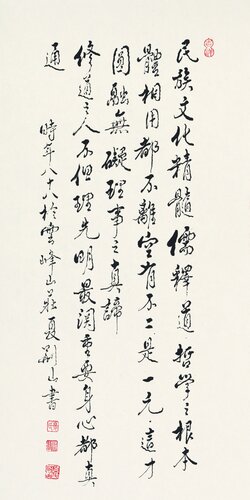 民族文化精髓儒釋道哲學之根本
體相用都不離空有不二是一元這才
圓融無礙理事之真諦
修道之人不但理先明最関重要身心都真
通
時年八十八於雲峰山莊夏荊山書